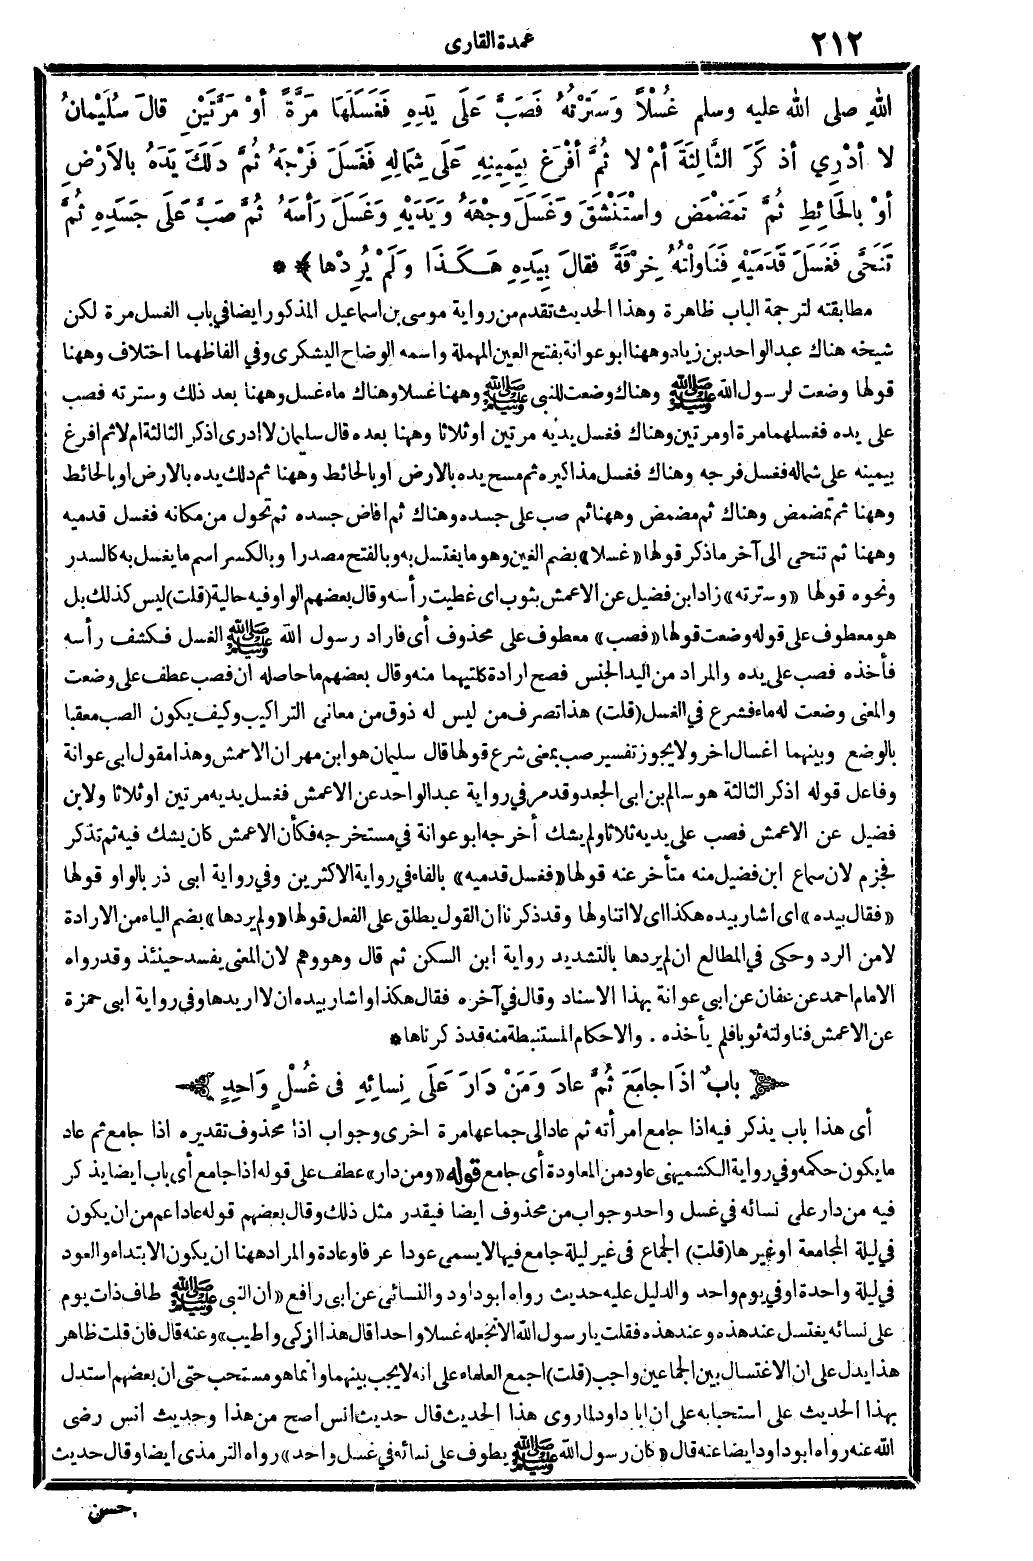 ٢١٢
عمدة القارى
اللهِ صلى الله عليه وسلم غُسْلاً وَسَتَرْتُهُ فَصَبَّ عَلَى يَدِهِ فَغَسَلَهَا مَرَّةً أوْ مَرَّتَيْنِ قالَ سُلَيْمانُ
لا أدْرِي أذَكَرَ الثَّالِثَةَ أمْ لا ثُمَّ أفْرَغَ بِيَمِينِهِ عَلَى شِمَالِهِ فَغَسَلَ فَرْجَهُ ثُمَّ دَلَكَ يَدَهُ بالأرْضِ
أوْ بالحَائِطِ ثُمَّ تَمَضْمَضَ واسْتَنْشَقَ وَغَسَلَ وجْهَهُ ويَدَيْهِ وَغَسَلَ رَأسَهُ ثُمَّ صَبَّ عَلَى جَسَدِهِ ثُمَّ
تَنَحَّى فَغَسَلَ قَدَمَيْهِ فَنَاوَلْتُهُ خِرْقَةً فقالَ بِيَدِهِ هَكَذَا وَلَمْ يُرِدْها ﴾ * *
مطابقته لترجمة الباب ظاهرة وهذا الحديث تقدم من رواية موسى بن اسماعيل المذكور ايضا فى باب الغسل مرة لكن
شيخه هناك عبد الواحد بن زياد وههنا ابو عوانة بفتح العين المهملة واسمه الوضاح اليشكرى وفي الفاظهما اختلاف وههنا
قولها وضعت لرسول الله ﷺ وهناك وضعت للنبى ﷺ وههنا غسلا وهناك ماء غسل وههنا بعد ذلك وسترته فصب
على يده فغسلهما مرة او مرتين وهناك فغسل يديه مرتين او ثلاثا وههنا بعده قال سليمان لا ادرى اذكر الثالثة ام لا ثم افرغ
بيمينه على شماله فغسل فرجه وهناك فغسل مذاكيره ثم مسح يده بالارض او بالحائط وههنا ثم دلك يده بالارض او بالحائط
وههنا ثم تمضمض وهناك ثم مضمض وههنا ثم صب على جسده وهناك ثم افاض جسده ثم تحول من مكانه فغسل قدميه
وههنا ثم تنحى الى آخر ما ذكر قولها «غسلا» بضم الغين وهو ما يغتسل به وبالفتح مصدرا وبالكسر اسم ما يغسل به كالسدر
ونحوه قولها «وسترته» زاد ابن فضيل عن الاعمش بثوب اى غطيت رأسه وقال بعضهم الواو فيه حالية (قلت) ليس كذلك بل
هو معطوف على قوله وضعت قولها «فصب» معطوف على محذوف أى فاراد رسول الله ﷺ الغسل فكشف رأسه
فأخذه فصب على يده والمراد من اليد الجنس فصح ارادة كلتيهما منه وقال بعضهم ما حاصله ان فصب عطف على وضعت
والمعنى وضعت له ماء فشرع في الغسل (قلت) هذا تصرف من ليس له ذوق من معانى التراكيب وكيف يكون الصب معقبا
بالوضع وبينهما اغسال اخر ولا يجوز تفسير صب بمعنى شرع قولها قال سليمان هو ابن مهران الاعمش وهذا مقول ابى عوانة
وفاعل قوله اذكر الثالثة هو سالم بن ابى الجعد وقد مر في رواية عبد الواحد عن الاعمش فغسل يديه مرتين او ثلاثا ولابن
فضيل عن الاعمش فصب على يديه ثلاثا ولم يشك أخرجه ابو عوانة في مستخرجه فكأن الاعمش كان يشك فيه ثم تذكر
فجزم لان سماع ابن فضيل منه متأخر عنه قولها «فغسل قدميه» بالفاء في رواية الاكثرين وفي رواية ابى ذر بالواو قولها
«فقال بيده» اى اشار بيده هكذا اى لا اتناولها وقد ذكرنا ان القول يطلق على الفعل قولها «ولم يردها» بضم الياء من الارادة
لا من الرد وحكى في المطالع ان لم يردها بالتشديد رواية ابن السكن ثم قال وهو وهم لان المعنى يفسد حينئذ وقد رواه
الامام احمد عن عفان عن ابى عوانة بهذا الاسناد وقال في آخره فقال هكذا واشار بيده ان لا اريدها وفي رواية ابى حمزة
عن الاعمش فناولته ثوبا فلم يأخذه . والاحكام المستنبطة منه قد ذكرناها *
﴿ بابٌ اذَا جامَعَ ثُمَّ عادَ وَمَنْ دَارَ عَلَى نِسائِهِ فى غُسْلٍ وَاحِدٍ ﴾
أى هذا باب يذكر فيه اذا جامع امرأته ثم عاد الى جماعها مرة اخرى وجواب اذا محذوف تقديره اذا جامع ثم عاد
ما يكون حكمه وفي رواية الكشميهنى عاود من المعاودة أى جامع قوله «ومن دار» عطف على قوله اذا جامع أى باب ايضا يذكر
فيه من دار على نسائه في غسل واحد وجواب من محذوف ايضا فيقدر مثل ذلك وقال بعضهم قوله عاد اعم من ان يكون
في ليلة المجامعة او غيرها (قلت) الجماع فى غير ليلة جامع فيها لا يسمى عودا عرفا وعادة والمراد ههنا ان يكون الابتداء والعود
في ليلة واحدة او في يوم واحد والدليل عليه حديث رواه ابو داود والنسائى عن ابى رافع «ان النبى ﷺ طاف ذات يوم
على نسائه يغتسل عند هذه وعند هذه فقلت يا رسول الله الا تجعله غسلا واحدا قال هذا ازكى واطيب» وعنه قال فان قلت ظاهر
هذا يدل على ان الاغتسال بين الجماعين واجب (قلت) اجمع العلماء على انه لا يجب بينهما وانما هو مستحب حتى ان بعضهم استدل
بهذا الحديث على استحبابه على ان ابا داود لما روى هذا الحديث قال حديث انس اصح من هذا وحديث انس رضى
الله عنه رواه ابو داود ايضا عنه قال «كان رسول الله ﷺ يطوف على نسائه في غسل واحد» رواه الترمذى ايضا وقال حديث
حسن